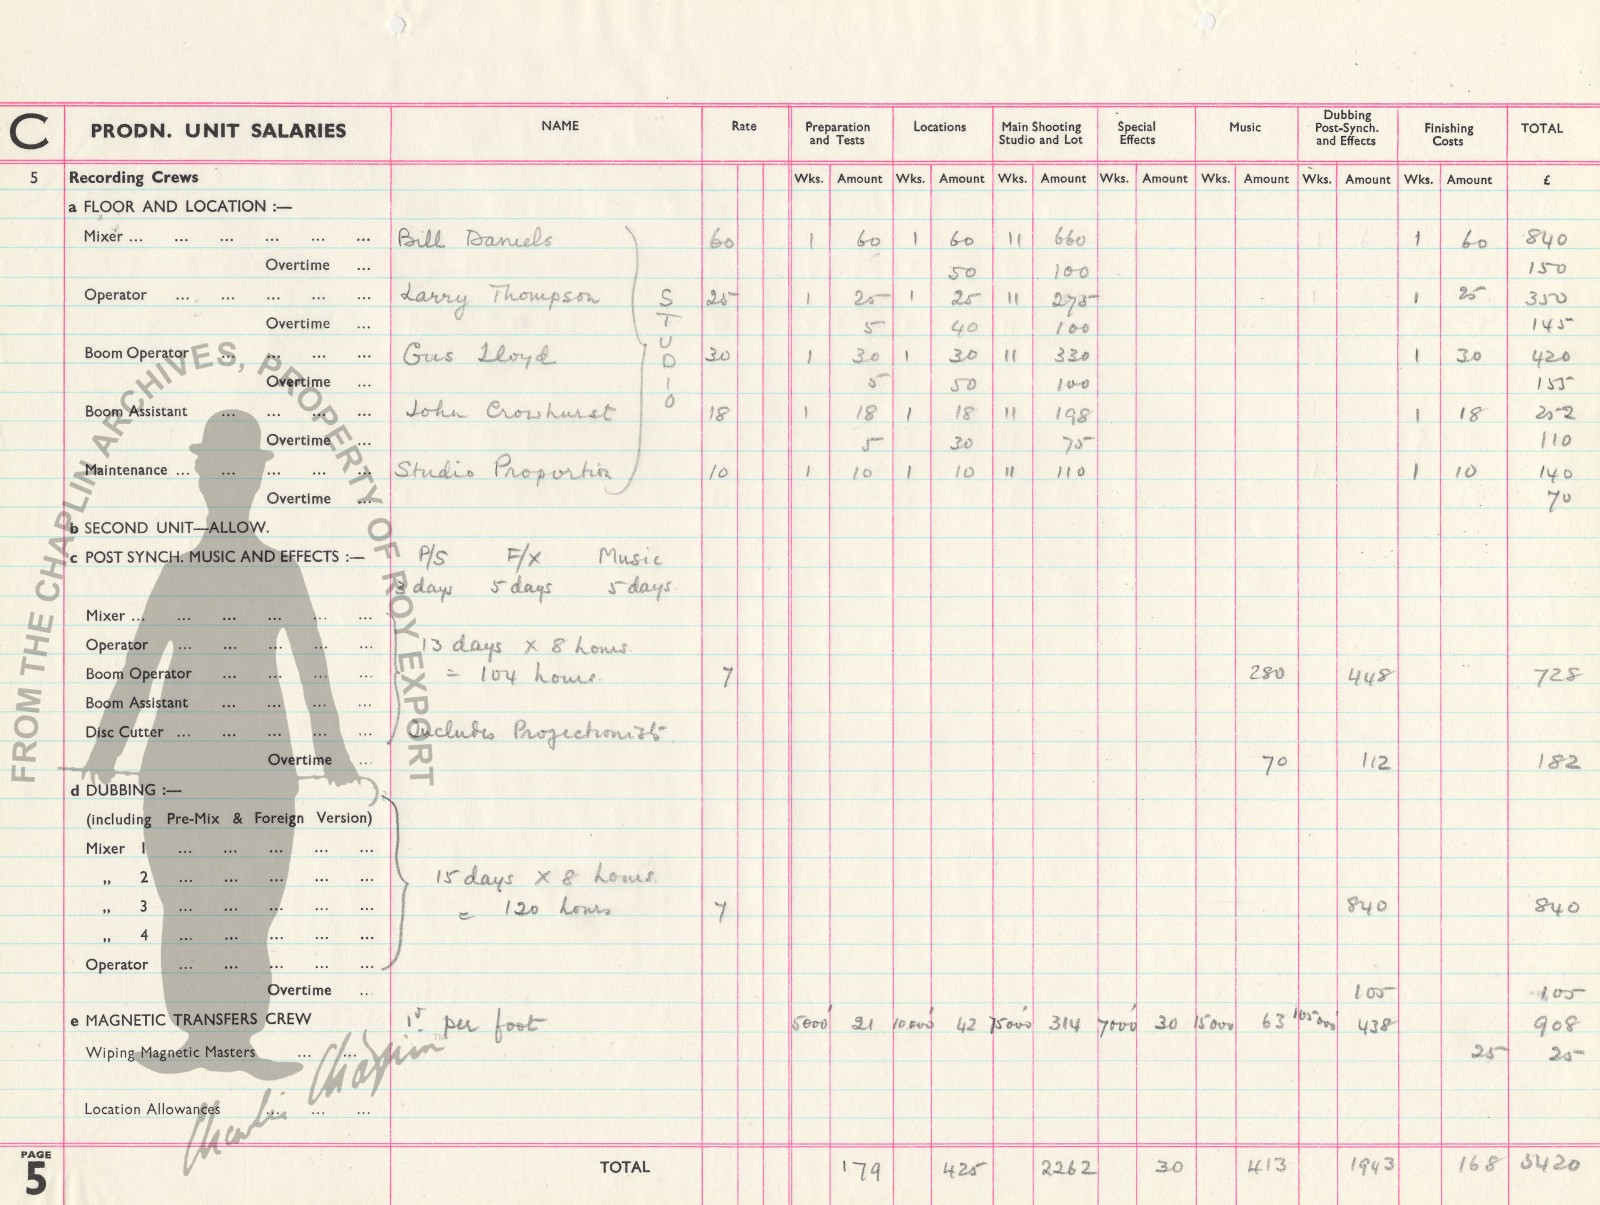 C PRODN. UNIT SALARIES NAME Rate Preparation and Tests Locations Main Shooting Studio and Lot Special Effects Music Dubbing Post-Synch. and Effects Finishing Costs TOTAL
5 Recording Crews Wks. Amount Wks. Amount Wks. Amount Wks. Amount Wks. Amount Wks. Amount Wks. Amount £
a FLOOR AND LOCATION :—
Mixer ... ... ... ... ... ... Bill Daniels 60 1 60 1 60 11 660 1 60 840
Overtime ... 50 100 150
Operator ... ... ... ... ... Larry Thompson STUDIO 25 1 25 1 25 11 275 1 25 350
Overtime ... 5 40 100 145
Boom Operator ... ... ... ... Gus Lloyd 30 1 30 1 30 11 330 1 30 420
Overtime ... 5 50 100 155
Boom Assistant ... ... ... ... John Crowhurst 18 1 18 1 18 11 198 1 18 252
Overtime ... 5 30 75 110
Maintenance ... ... ... ... ... Studio Proportion 10 1 10 1 10 11 110 1 10 140
Overtime ... 70
b SECOND UNIT—ALLOW.
c POST SYNCH. MUSIC AND EFFECTS :— P/S F/X Music
3 days 5 days 5 days
Mixer ... ... ... ... ... ...
Operator ... ... ... ... ... 13 days x 8 hours
Boom Operator ... ... ... ... = 104 hours. 7 280 448 728
Boom Assistant ... ... ... ...
Disc Cutter ... ... ... ... ... Includes Projectionists
Overtime ... 70 112 182
d DUBBING :—
(including Pre-Mix & Foreign Version)
Mixer 1 ... ... ... ... ...
„ 2 ... ... ... ... ... 15 days x 8 hours.
„ 3 ... ... ... ... ... = 120 hours 7 840 840
„ 4 ... ... ... ... ...
Operator ... ... ... ... ...
Overtime ... 105 105
e MAGNETIC TRANSFERS CREW per foot 5000' 21 10,000' 42 75000' 314 7000' 30 15000 63 105000' 438 908
Wiping Magnetic Masters ... ... 25 25
Location Allowances ... ... ...
PAGE 5 TOTAL 179 425 2262 30 413 1943 168 5420
FROM THE CHAPLIN ARCHIVES, PROPERTY OF ROY EXPORT
Charlie Chaplin TM